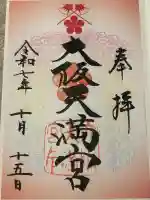 奉拝
大阪天満宮
令和七年
十月
十五日